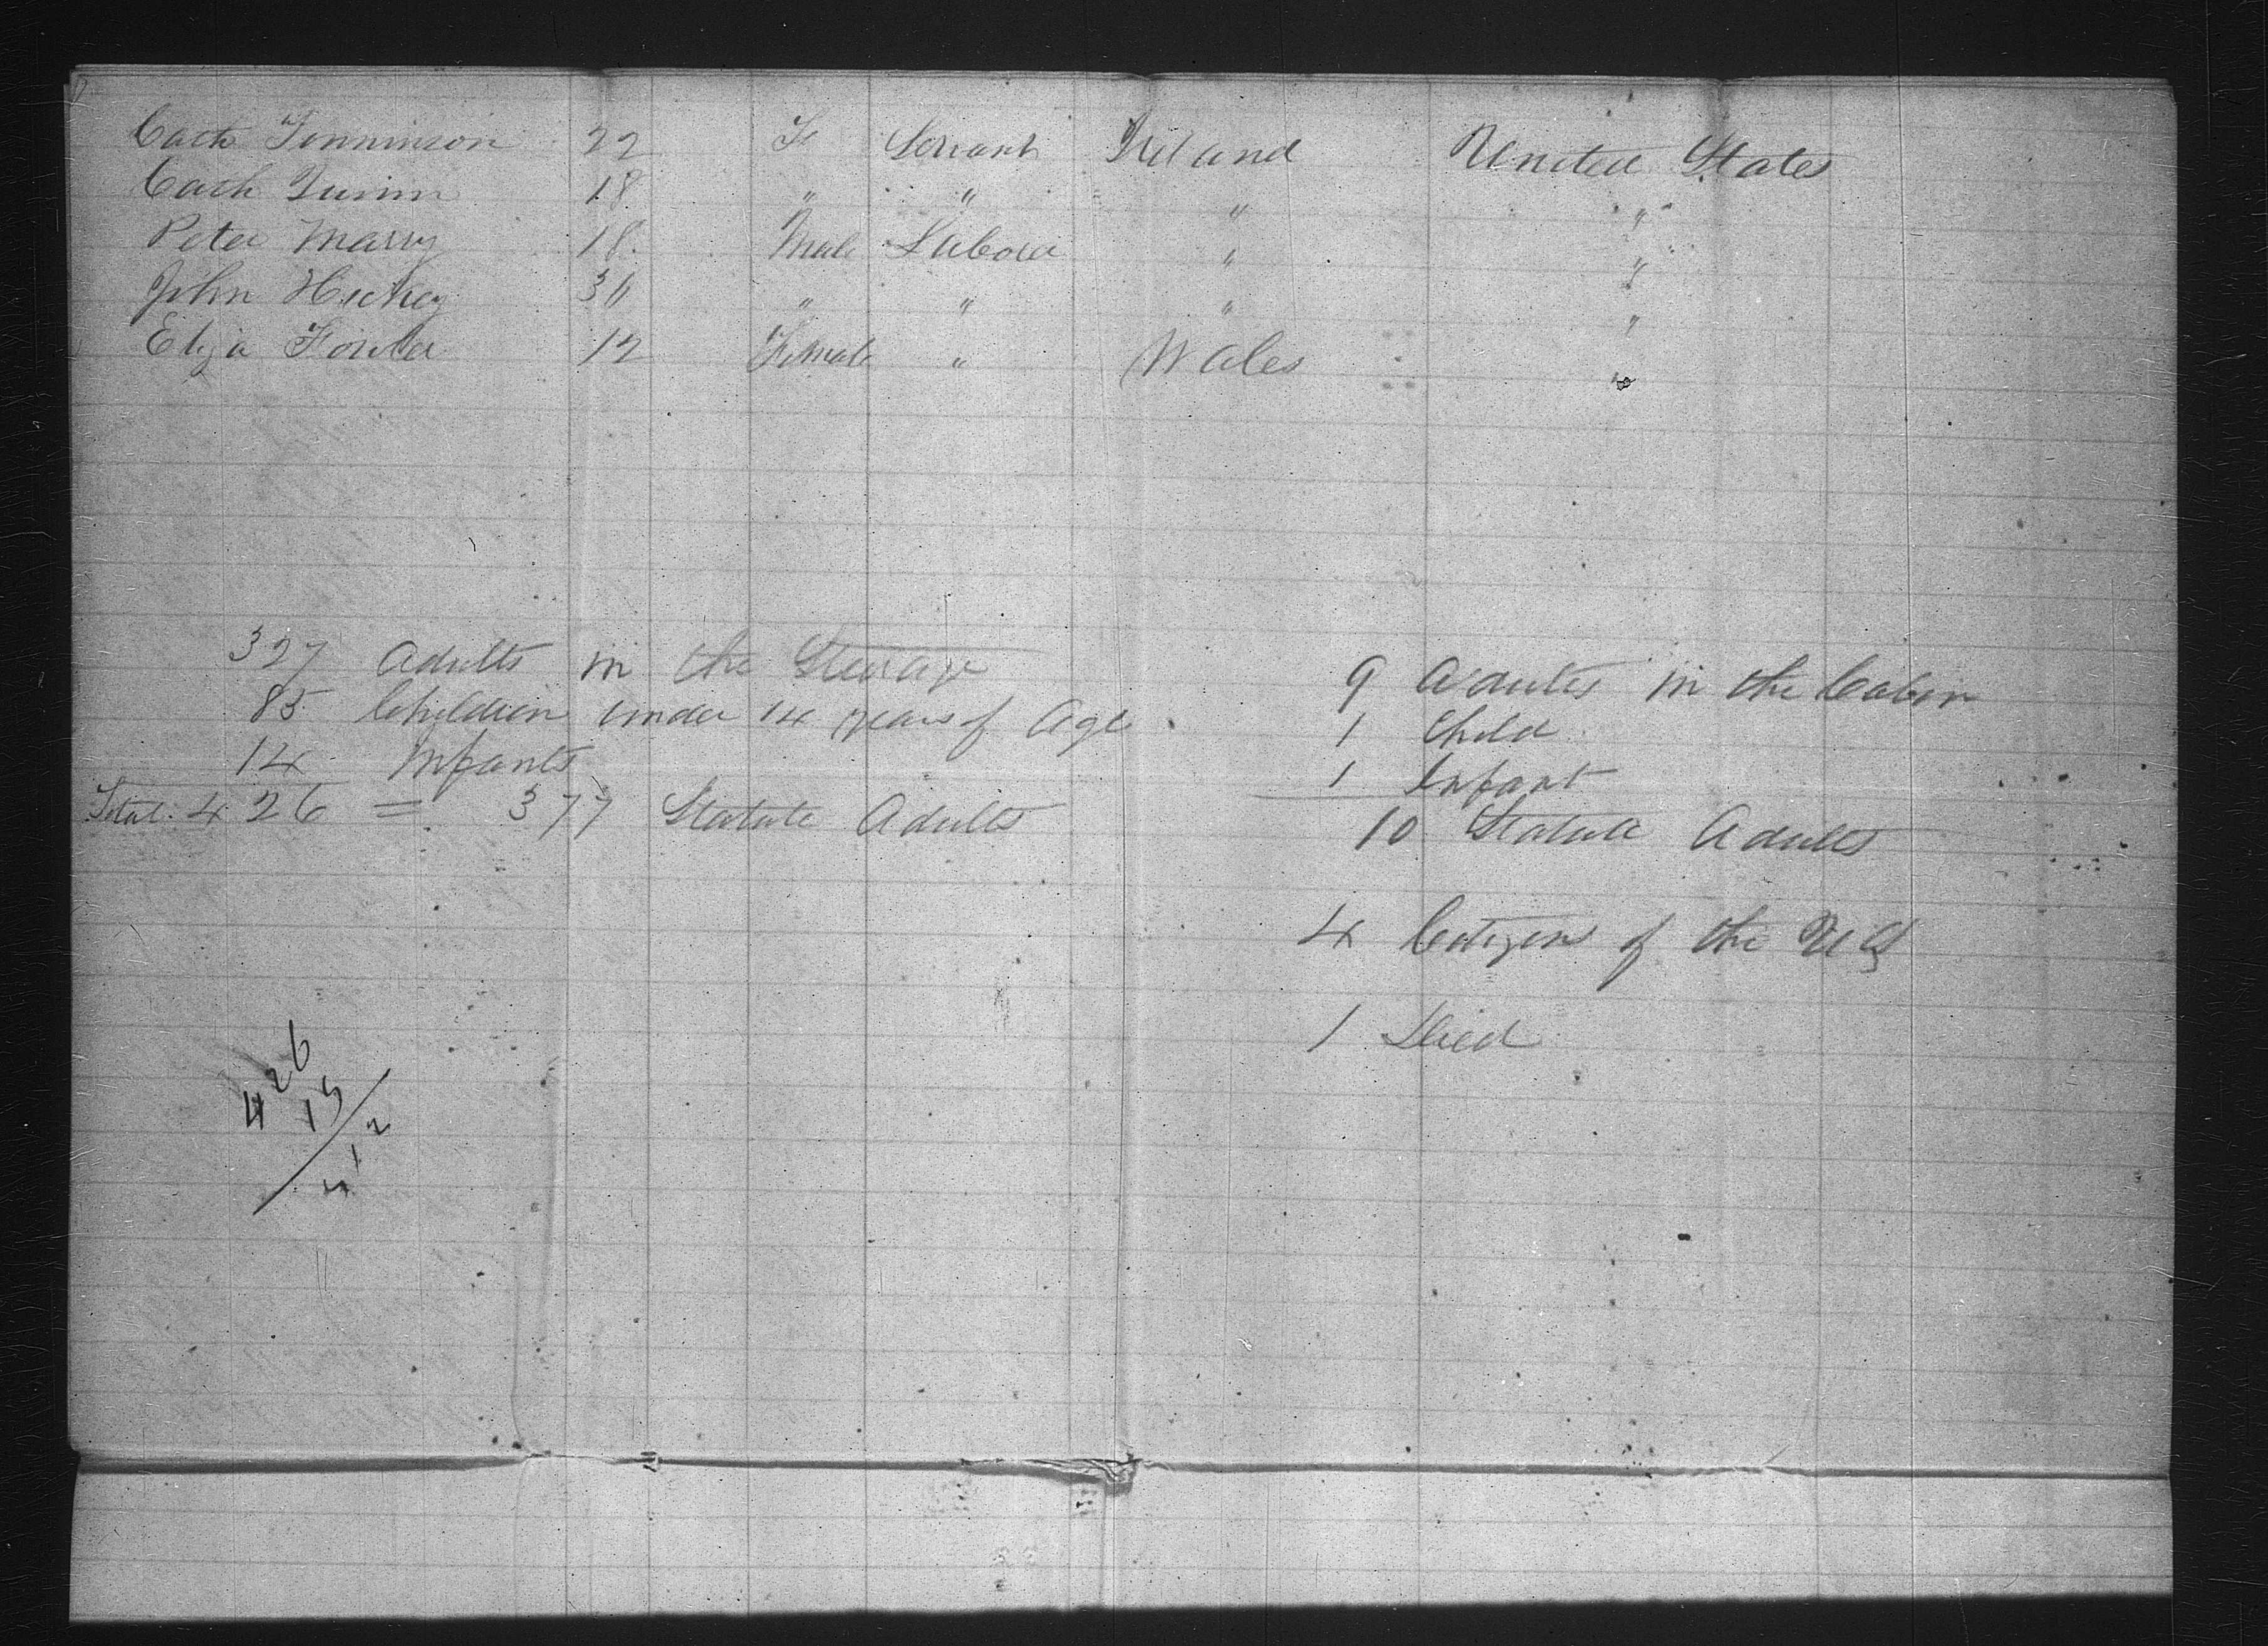 Cath Tenninson 22 F Servant Ireland United States
Cath Quinn 18 " " " "
Peter Marry 18 Male Labour " "
John Hickey 30 " " " "
Eliza Fowler 12 Female " Wales "
327 Adults in the Steerage
85 Children under 14 years of Age
14 Infants
Total 426 = 377 Statute Adults
9 Adults in the Cabin
1 Child
1 Infant
10 Statute Adults
4 Citizens of the US
1 Died
426
15